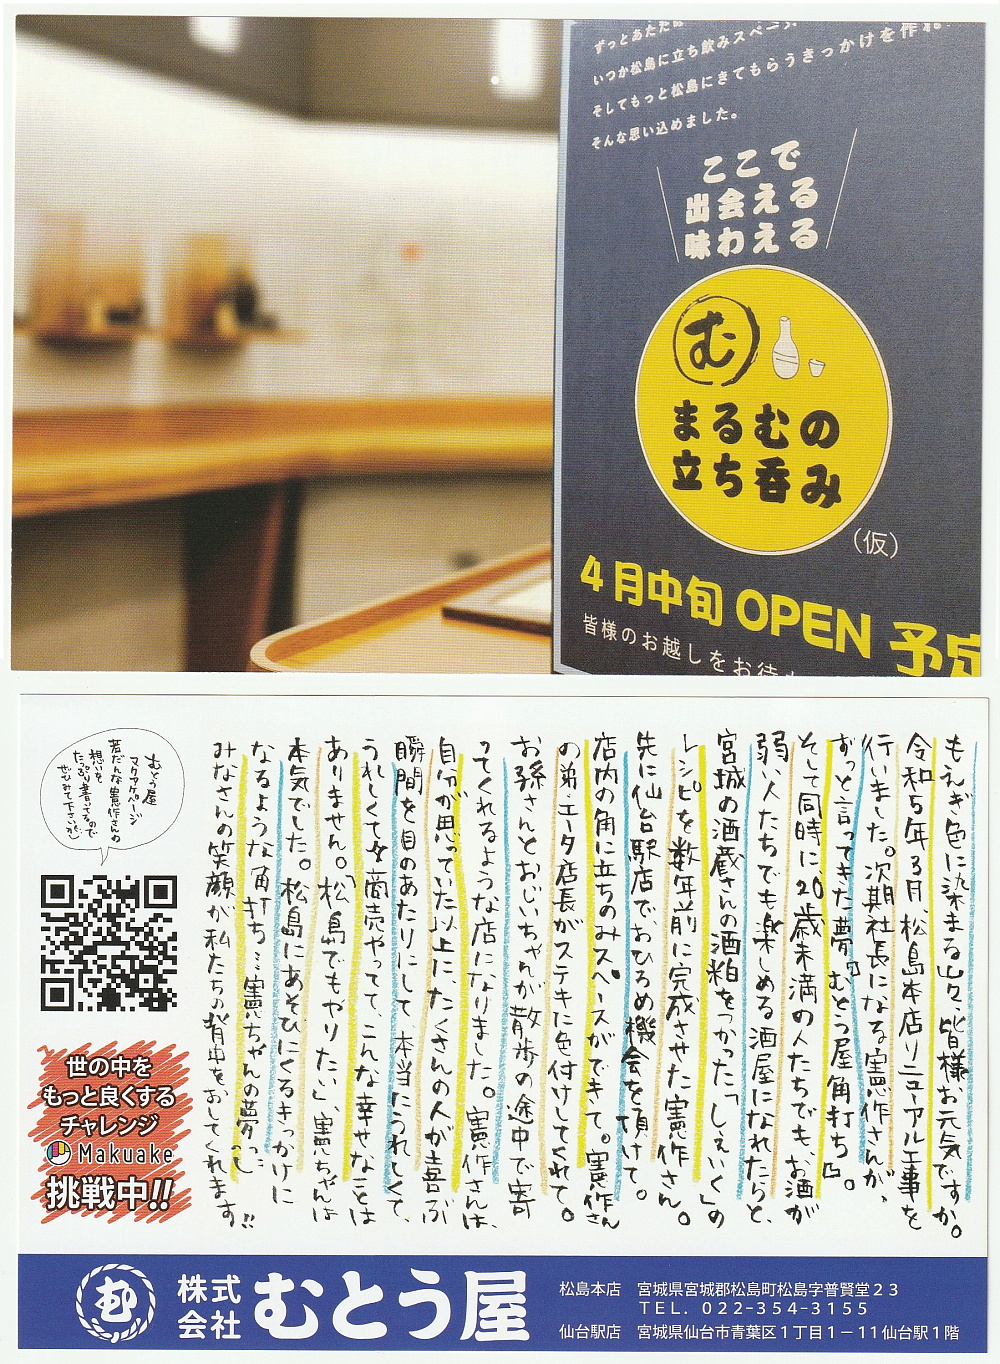 ずっとあたため
いつか松島に立ち飲みスペース
そしてもっと松島にきてもらうきっかけを作れ
そんな思い込めました。
ここで
出会える
味わえる
む
まるむの
立ち呑み
(仮)
4月中旬 OPEN 予定
皆様のお越しをお待
もえぎ色に染まる山々、皆様お元気ですか。
令和5年3月、松島本店リニューアル工事を
行いました。次期社長になる憲作さんが、
ずっと言ってきた夢『むとう屋角打ち』。
そして同時に、20歳未満の人たちでも、お酒が
弱い人たちでも楽しめる酒屋になれたらと、
宮城の酒蔵さんの酒粕をつかった「しぇいく」の
レシピを数年前に完成させた憲作さん。
先に仙台駅店でおひろめ機会を頂けて。
店内の角に立ちのみスペースができて。憲作さん
の弟、エータ店長がステキに色付けしてくれて。
お孫さんとおじいちゃんが散歩の途中で寄
ってくれるような店になりました。憲作さんは、
自分が思っていた以上に、たくさんの人が喜ぶ
瞬間を目のあたりにして、本当にうれしくて、
うれしくて。商売やってて、こんな幸せなことは
ありません。「松島でもやりたい」、憲ちゃんは
本気でした。松島にあそびにくるきっかけに
なるような角打ち…憲ちゃんの夢
みなさんの笑顔が私たちの背中をおしてくれます!!
むとう屋
マクアケページ
若だんな憲作さんの
想いを
たっぷり書いてるので
ぜひみて下さいね
世の中を
もっと良くする
チャレンジ
Makuake
挑戦中!!
む
株式会社 むとう屋
松島本店 宮城県宮城郡松島町松島字普賢堂23
TEL. 022-354-3155
仙台駅店 宮城県仙台市青葉区1丁目1-11仙台駅1階